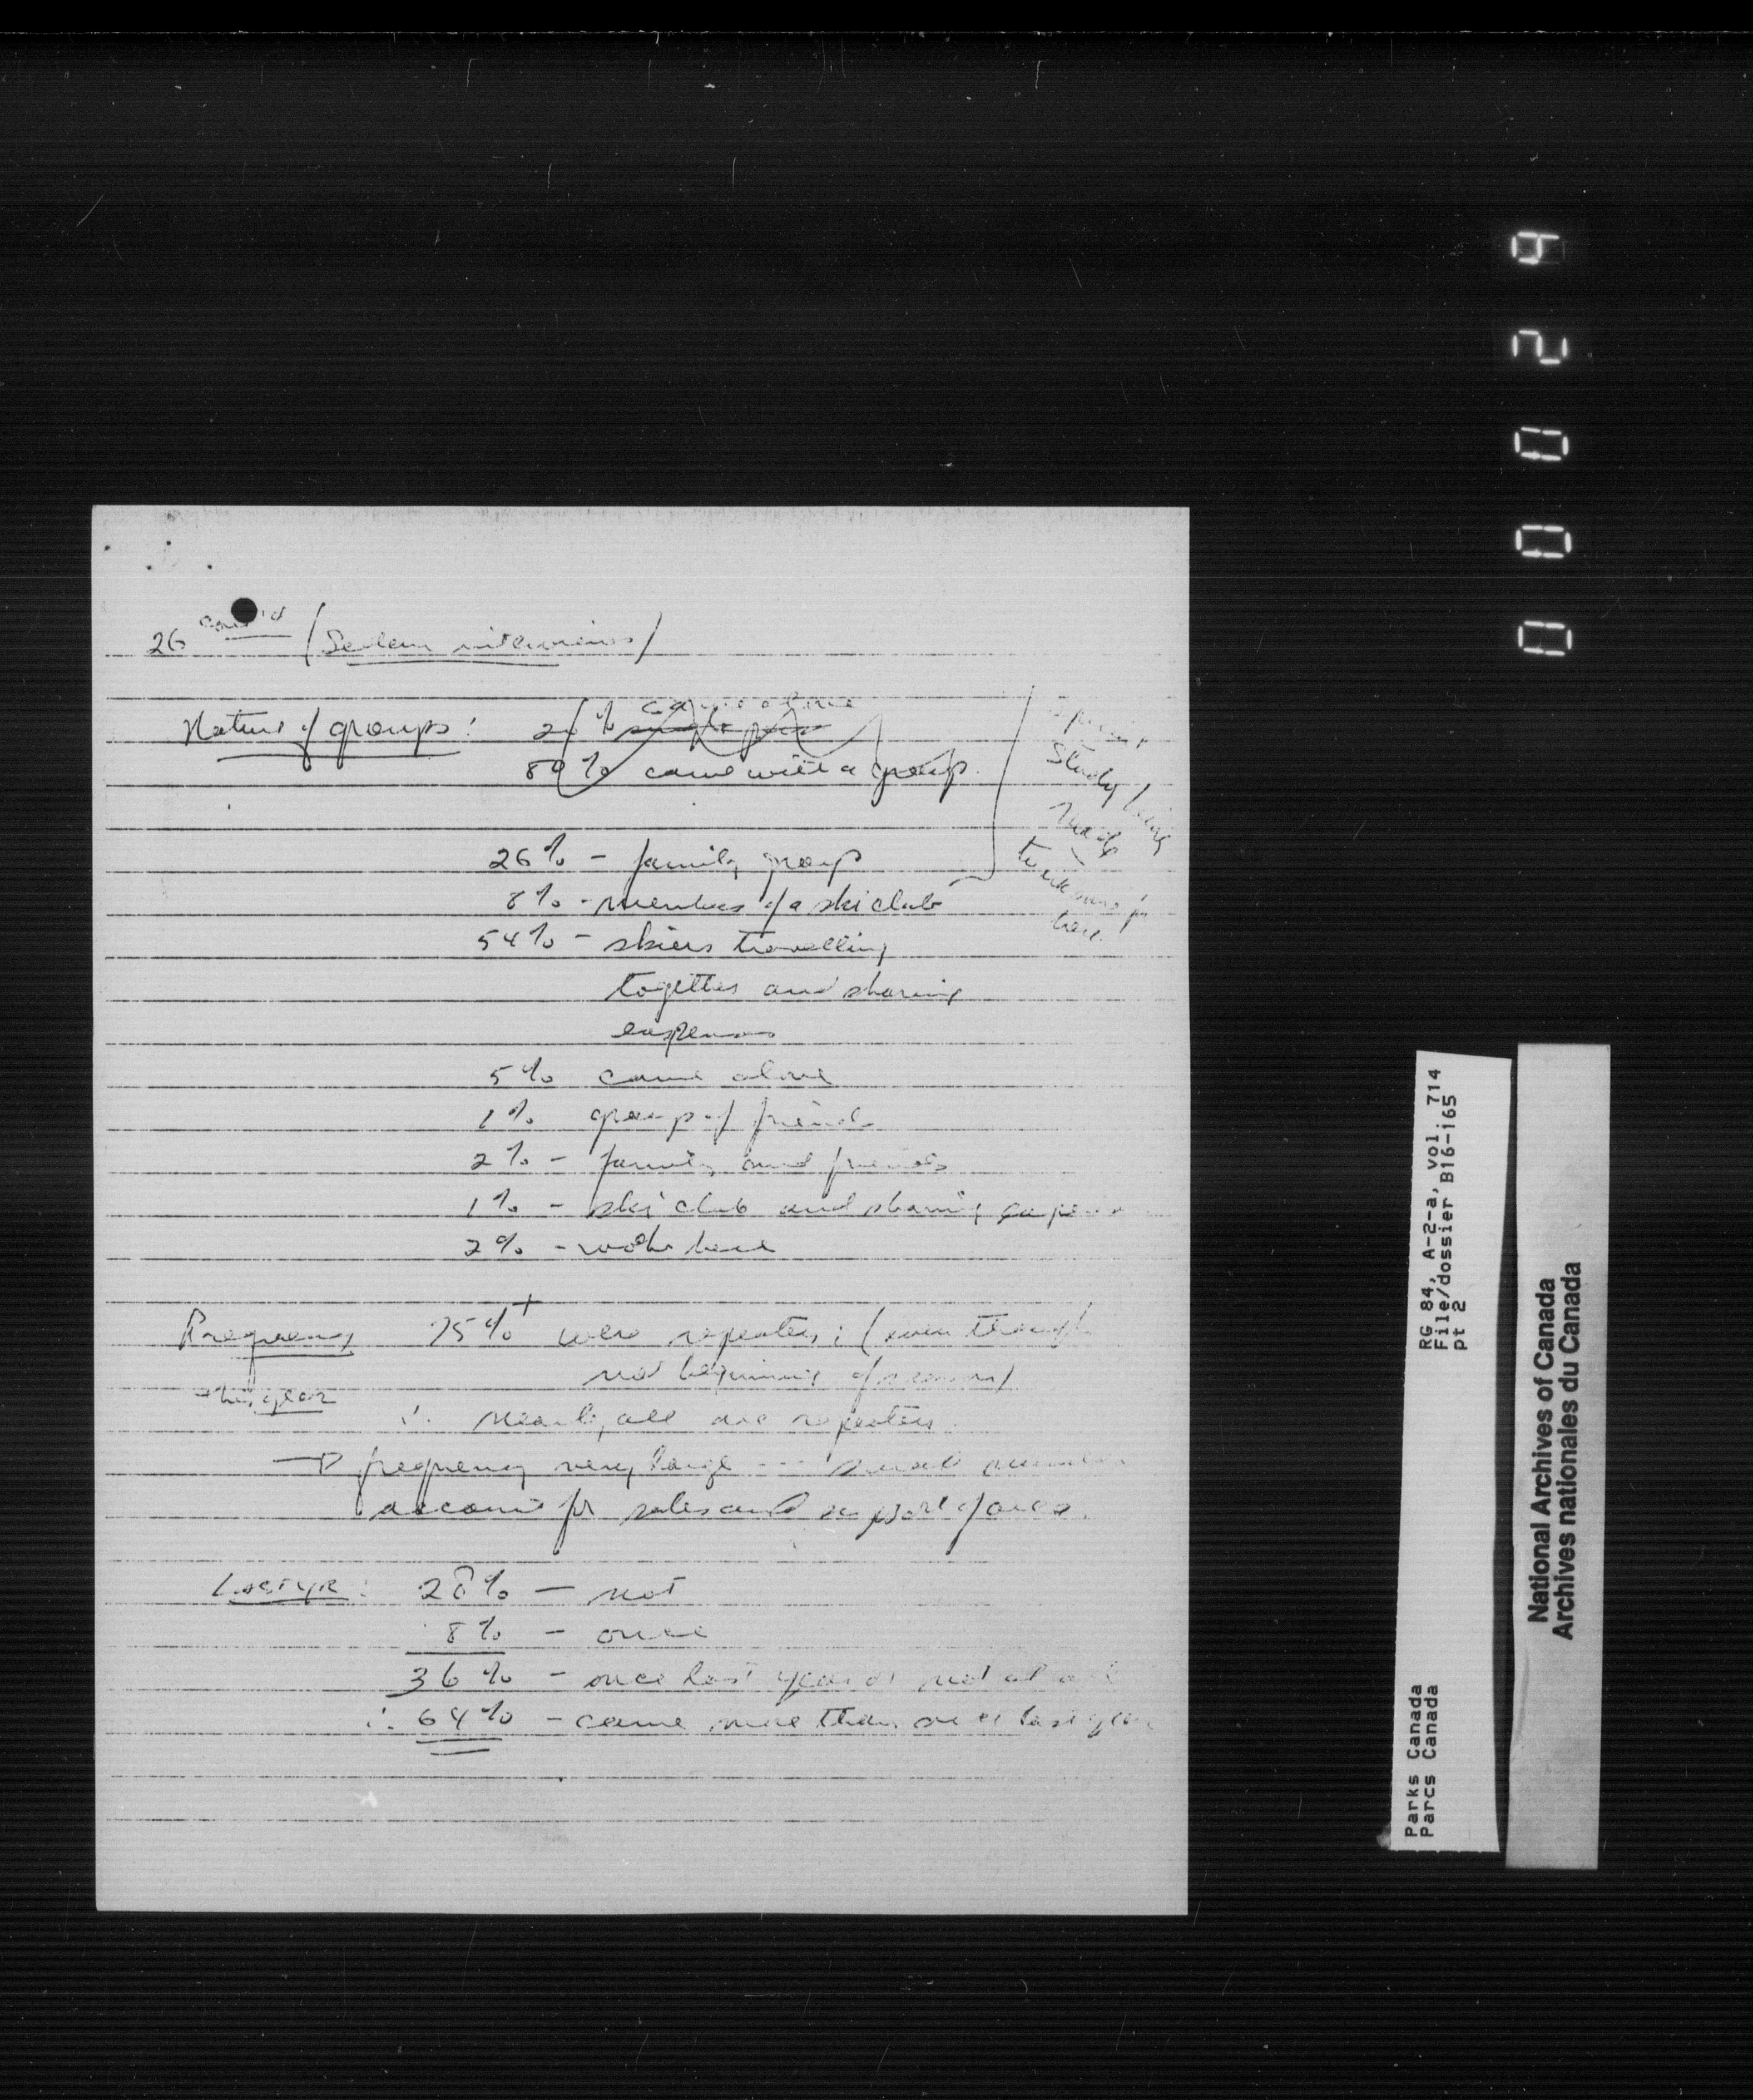 26 cont'd (Sedan interviews)
Nature of groups: 26% came alone
89% came with a group
26% - family group
8% - members of a ski club
54% - skiers travelling
together and sharing
expenses
5% came alone
1% group of friends
2% - family and friends
1% - ski club and sharing expenses
2% - work here
Study being
made
here.
Frequency 75%+ were repeaters: (even though
not beginning of season)
this year
∴ nearly all are repeaters.
→ frequency very large --- small number
account for sales and support of area.
Last yr: 28% — not
8% - once
36% - once last year or not at all
∴ 64% - came more than once last year
00024
RG 84, A-2-a, vol. 714
File/dossier B16-165
pt 2
Parks Canada
Parcs Canada
National Archives of Canada
Archives nationales du Canada